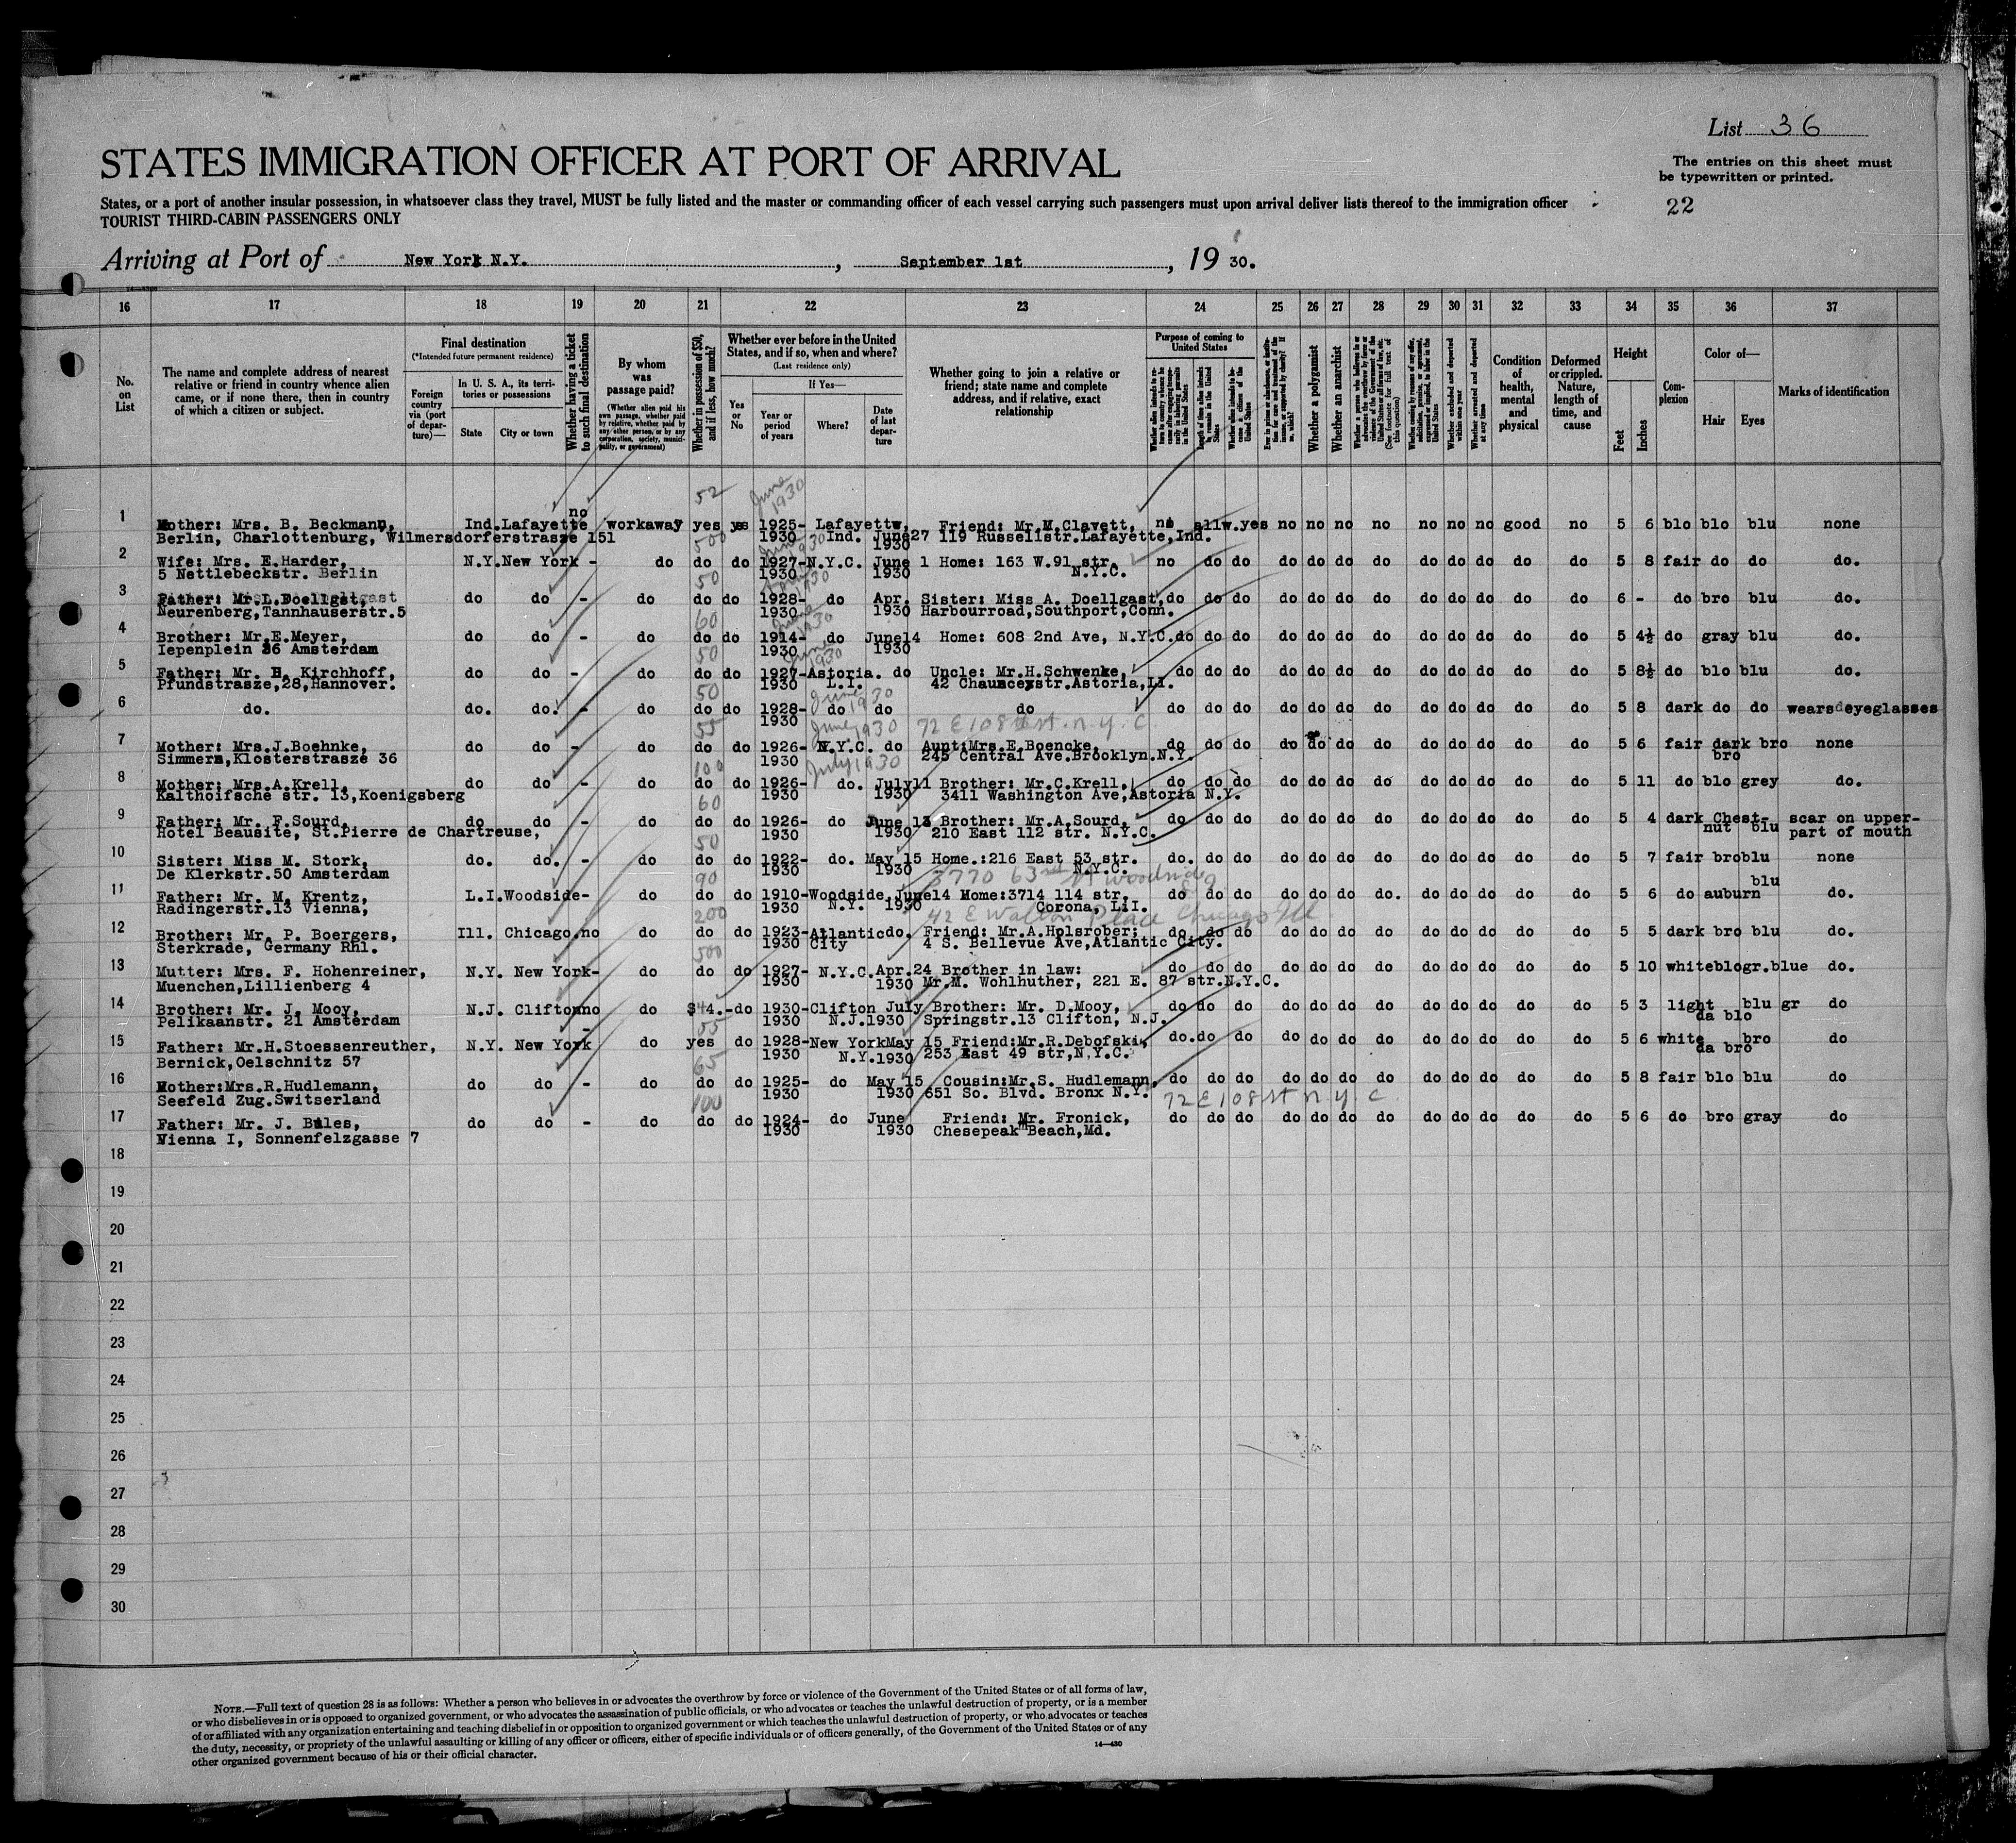 List 36
STATES IMMIGRATION OFFICER AT PORT OF ARRIVAL
The entries on this sheet must
be typewritten or printed.
States, or a port of another insular possession, in whatsoever class they travel, MUST be fully listed and the master or commanding officer of each vessel carrying such passengers must upon arrival deliver lists thereof to the immigration officer
TOURIST THIRD-CABIN PASSENGERS ONLY
22
Arriving at Port of New York N.Y. , September 1st , 19 30.
16 17 18 19 20 21 22 23 24 25 26 27 28 29 30 31 32 33 34 35 36 37
No. on List
The name and complete address of nearest relative or friend in country whence alien came, or if none there, then in country of which a citizen or subject.
Final destination
(*Intended future permanent residence)
Foreign country via (port of departure)—
In U. S. A., its territories or possessions
State
City or town
Whether having a ticket to such final destination
By whom was passage paid?
(Whether alien paid his own passage, whether paid by relative, whether paid by any other person, or by any corporation, society, municipality, or government)
Whether in possession of $50, and if less, how much?
Whether ever before in the United States, and if so, when and where?
(Last residence only)
Yes or No
If Yes—
Year or period of years
Where?
Date of last departure
Whether going to join a relative or friend; state name and complete address, and if relative, exact relationship
Purpose of coming to United States
Whether a polygamist
Whether an anarchist
Condition of health, mental and physical
Deformed or crippled. Nature, length of time, and cause
Height
Feet
Inches
Complexion
Color of—
Hair
Eyes
Marks of identification
52 June 1930
no
1 Mother: Mrs. B. Beckmann, Ind. Lafayette workaway yes yes 1925- Lafayettw, Friend: Mr.M.Clavett, no allw. yes no no no no no no no good no 5 6 blo blo blu none
Berlin, Charlottenburg, Wilmersdorferstrasze 151 1930 Ind. June27 1930 119 Russellstr.Lafayette,Ind.
500 June 1930
2 Wife: Mrs. E.Harder, N.Y. New York - do do do 1927- N.Y.C. June 1 Home: 163 W.91 str. no do do do do do do do do do do do 5 8 fair do do do.
5 Nettlebeckstr. Berlin 1930 1930 N.Y.C.
50 1930
3 Father: Mr.L.Doellgast, do do - do do do 1928- do Apr. Sister: Miss A. Doellgast, do do do do do do do do do do do do 6 - do bro blu do.
Neurenberg,Tannhauserstr.5 1930 1930 Harbourroad,Southport,Conn.
60 June 1930
4 Brother: Mr.E.Meyer, do do - do do do 1914- do June14 Home: 608 2nd Ave, N.Y.C. do do do do do do do do do do do do 5 4½ do gray blu do.
Iepenplein 36 Amsterdam 1930 1930
50 June 1930
5 Father: Mr. H. Kirchhoff, do do - do do do 1927- Astoria. do Uncle: Mr.H.Schwenke, do do do do do do do do do do do do 5 8½ do blo blu do.
Pfundstrasze,28,Hannover. 1930 L.I. 42 Chaunceystr.Astoria,LI.
50 June 1930
6 do. do. do. - do do do 1928- do do do do do do do do do do do do do do do 5 8 dark do do wears eyeglasses
1930
55 June 1930 72 E 108 st. N.Y.C.
7 Mother: Mrs.J.Boehnke, do do - do do do 1926- N.Y.C. do Aunt:Mrs.E.Boencke, do do do do do do do do do do do do 5 6 fair dark bro none
Simmern,Klosterstrasze 36 1930 245 Central Ave.Brooklyn.N.Y. bro
100 July 1930
8 Mother: Mrs.A.Krell, do do - do do do 1926- do. July11 Brother: Mr.C.Krell, do do do do do do do do do do do do 5 11 do blo grey do.
Kalthoifsche str. 13,Koenigsberg 1930 1930 3411 Washington Ave,Astoria N.Y.
60
9 Father: Mr. F.Sourd, do do - do do do 1926- do June 13 Brother: Mr.A.Sourd, do do do do do do do do do do do do 5 4 dark Chest- scar on upper-
Hotel Beausite, St.Pierre de Chartreuse, 1930 1930 210 East 112 str. N.Y.C. nut blu part of mouth
50
10 Sister: Miss M. Stork, do. do. - do do do 1922- do. May 15 Home.:216 East 53 str. do. do do do do do do do do do do do 5 7 fair bro blu none
De Klerkstr.50 Amsterdam 1930 1930 N.Y.C.
90 3770 63rd St Woodside
11 Father: Mr. M. Krentz, L.I. Woodside- do do do 1910- Woodside, June14 Home:3714 114 str. do do do do do do do. do do do do do 5 6 do auburn blu do.
Radingerstr.13 Vienna, 1930 N.Y. 1930 Corona, LiI.
200 42 E Walton Place Chicago Ill
12 Brother: Mr. P. Boergers, Ill. Chicago. no do do do 1923- Atlantic do. Friend: Mr.A.Holsrober; do do do do do do do do do do do do 5 5 dark bro blu do.
Sterkrade, Germany Rhl. 1930 City 4 S. Bellevue Ave,Atlantic City.
500
13 Mutter: Mrs. F. Hohenreiner, N.Y. New York- do do do 1927- N.Y.C. Apr.24 Brother in law: do do do do do do do do do do do do 5 10 white blo gr.blue do.
Muenchen,Lillienberg 4 1930 1930 Mr.M. Wohlhuther, 221 E. 87 str.N.Y.C.
14 Brother: Mr. J. Mooy, N.J. Clifton no do $44.- do 1930- Clifton July Brother: Mr. D.Mooy, do do do do do do do do do do do 5 3 light blu gr do
Pelikaanstr. 21 Amsterdam 1930 N.J. 1930 Springstr.13 Clifton, N.J. da blo
55
15 Father: Mr.H.Stoessenreuther, N.Y. New York - do yes do 1928- New York May 15 Friend:Mr.R.Debofski, do. do do do do do do do do do do do 5 6 white bro do
Bernick,Oelschnitz 57 1930 N.Y. 1930 253 East 49 str,N.Y.C. da bro
65
16 Mother:Mrs.R.Hudlemann, do do - do do do 1925- do May 15 Cousin:Mr.S. Hudlemann, do do do do do do do do do do do do 5 8 fair blo blu do
Seefeld Zug.Switserland 1930 1930 651 So. Blvd. Bronx N.Y.
100 72 E 108 St N.Y.C.
17 Father: Mr. J. Biles, do do - do do do 1924- do June Friend: Mr. Fronick, do do do do do do do do do do do do 5 6 do bro gray do
Vienna I, Sonnenfelzgasse 7 1930 1930 Chesepeak Beach,Md.
18
19
20
21
22
23
24
25
26
27
28
29
30
NOTE.—Full text of question 28 is as follows: Whether a person who believes in or advocates the overthrow by force or violence of the Government of the United States or of all forms of law,
or who disbelieves in or is opposed to organized government, or who advocates the assassination of public officials, or who advocates or teaches the unlawful destruction of property, or is a member
of or affiliated with any organization entertaining and teaching disbelief in or opposition to organized government or which teaches the unlawful destruction of property, or who advocates or teaches
the duty, necessity, or propriety of the unlawful assaulting or killing of any officer or officers, either of specific individuals or of officers generally, of the Government of the United States or of any
other organized government because of his or their official character.
14—430